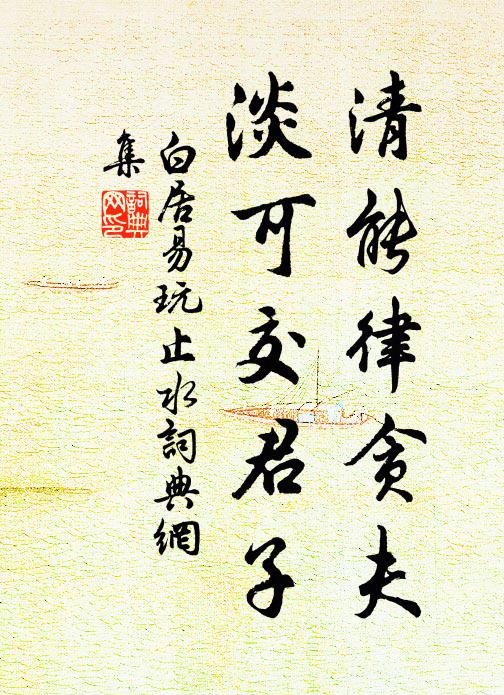 清能律贪夫
淡可交君子
白居易玩止水詞典網
集
詞典
网印